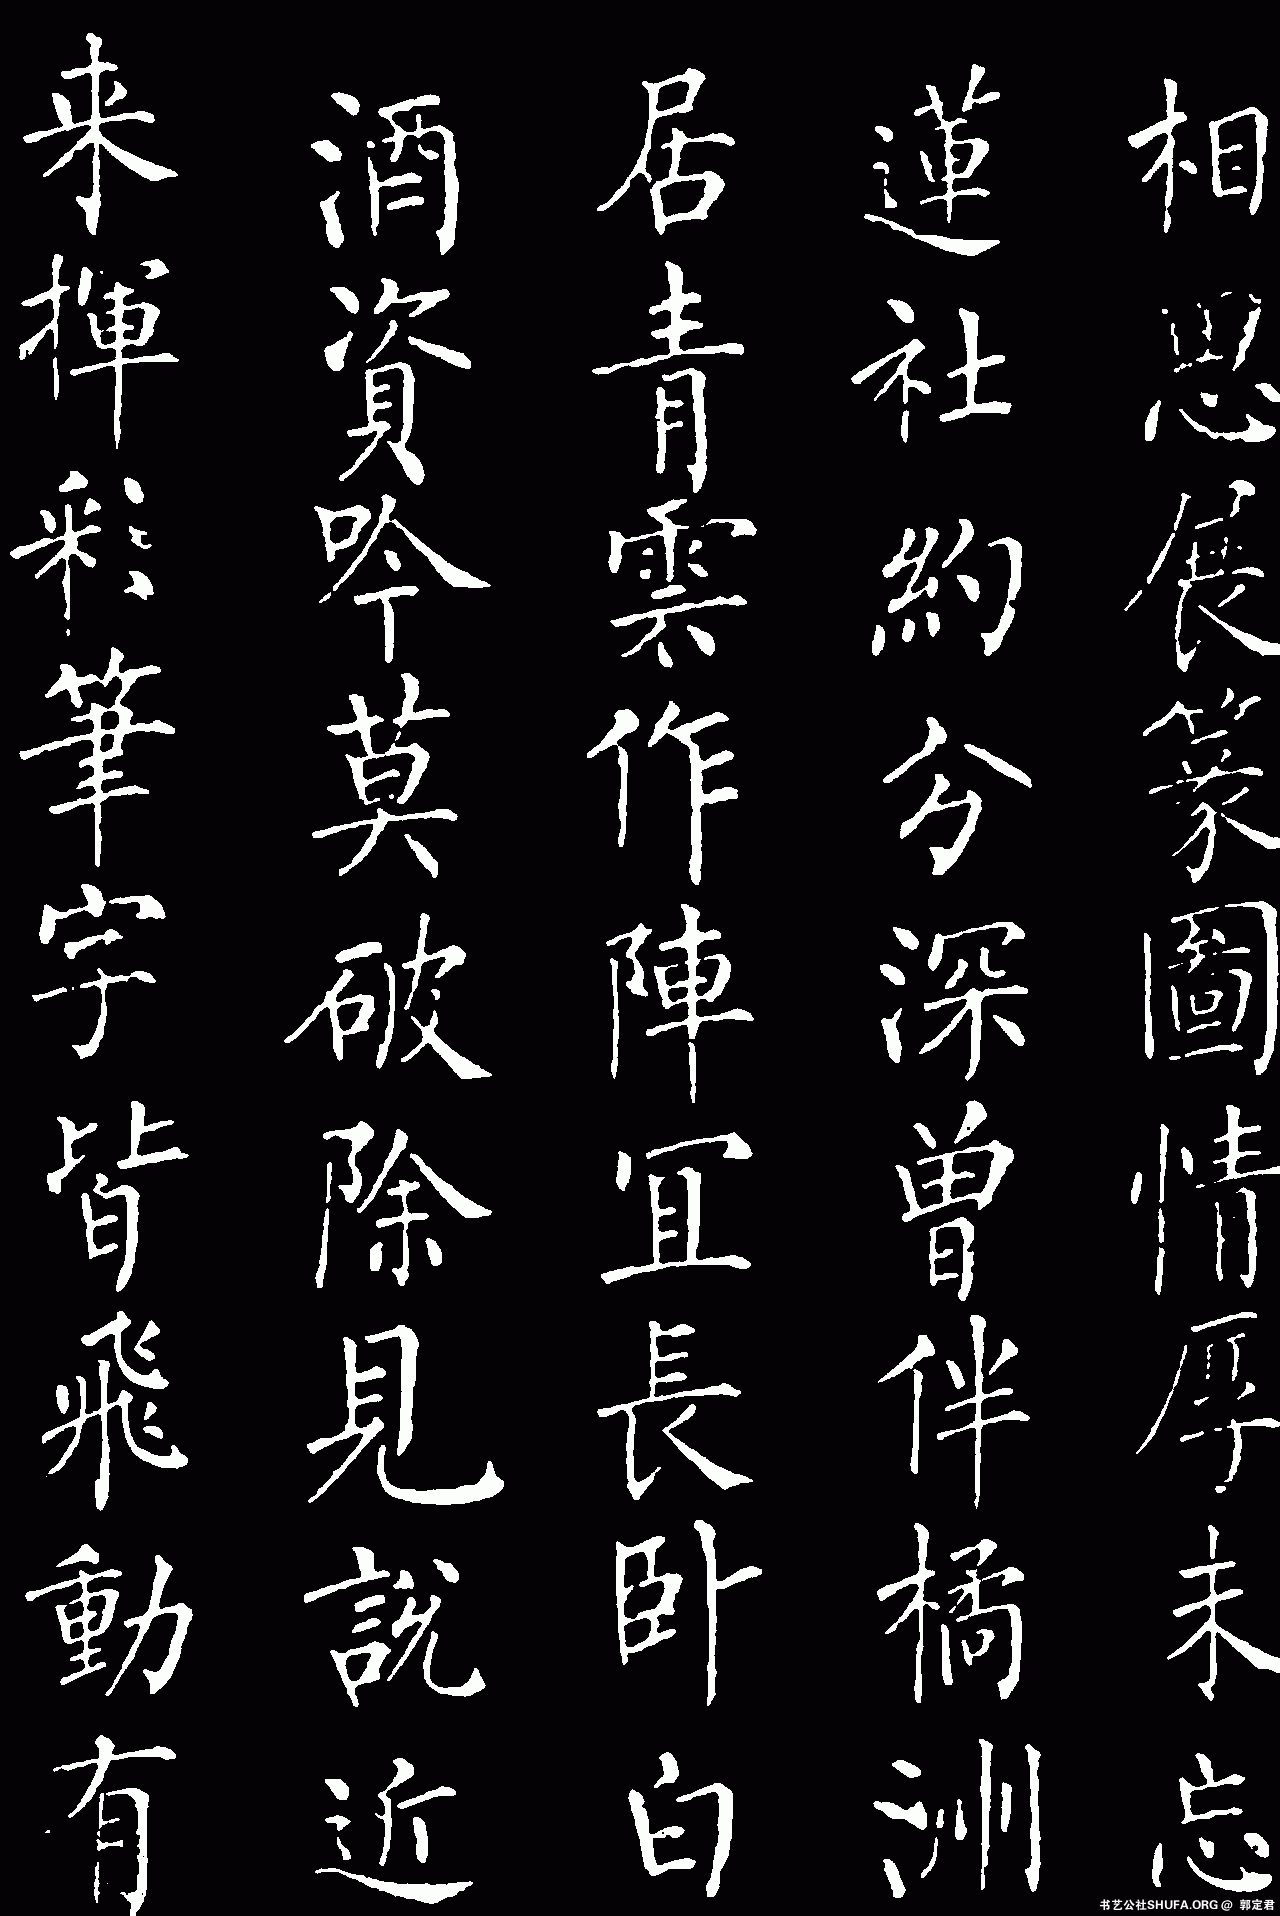 相思展篆圖情厚未忘
蓮社約分深曾伴橘洲
居青雲作陣冝長卧白
酒資吟莫破除見說近
来揮彩筆字皆飛動有
书艺公社SHUFA.ORG @ 郭定君